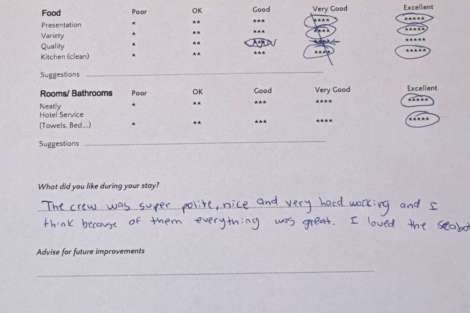 Food Poor OK Good Very Good Excellent
Presentation * ** *** **** *****
Variety * ** *** **** *****
Quality * ** *** **** *****
Kitchen (clean) * ** *** **** *****
Suggestions
Rooms/ Bathrooms Poor OK Good Very Good Excellent
Neatly * ** *** **** *****
Hotel Service
(Towels, Bed...) * ** *** **** *****
Suggestions
What did you like during your stay?
The crew was super polite, nice and very hard working and I
think because of them everything was great. I loved the seabob
Advise for future improvements